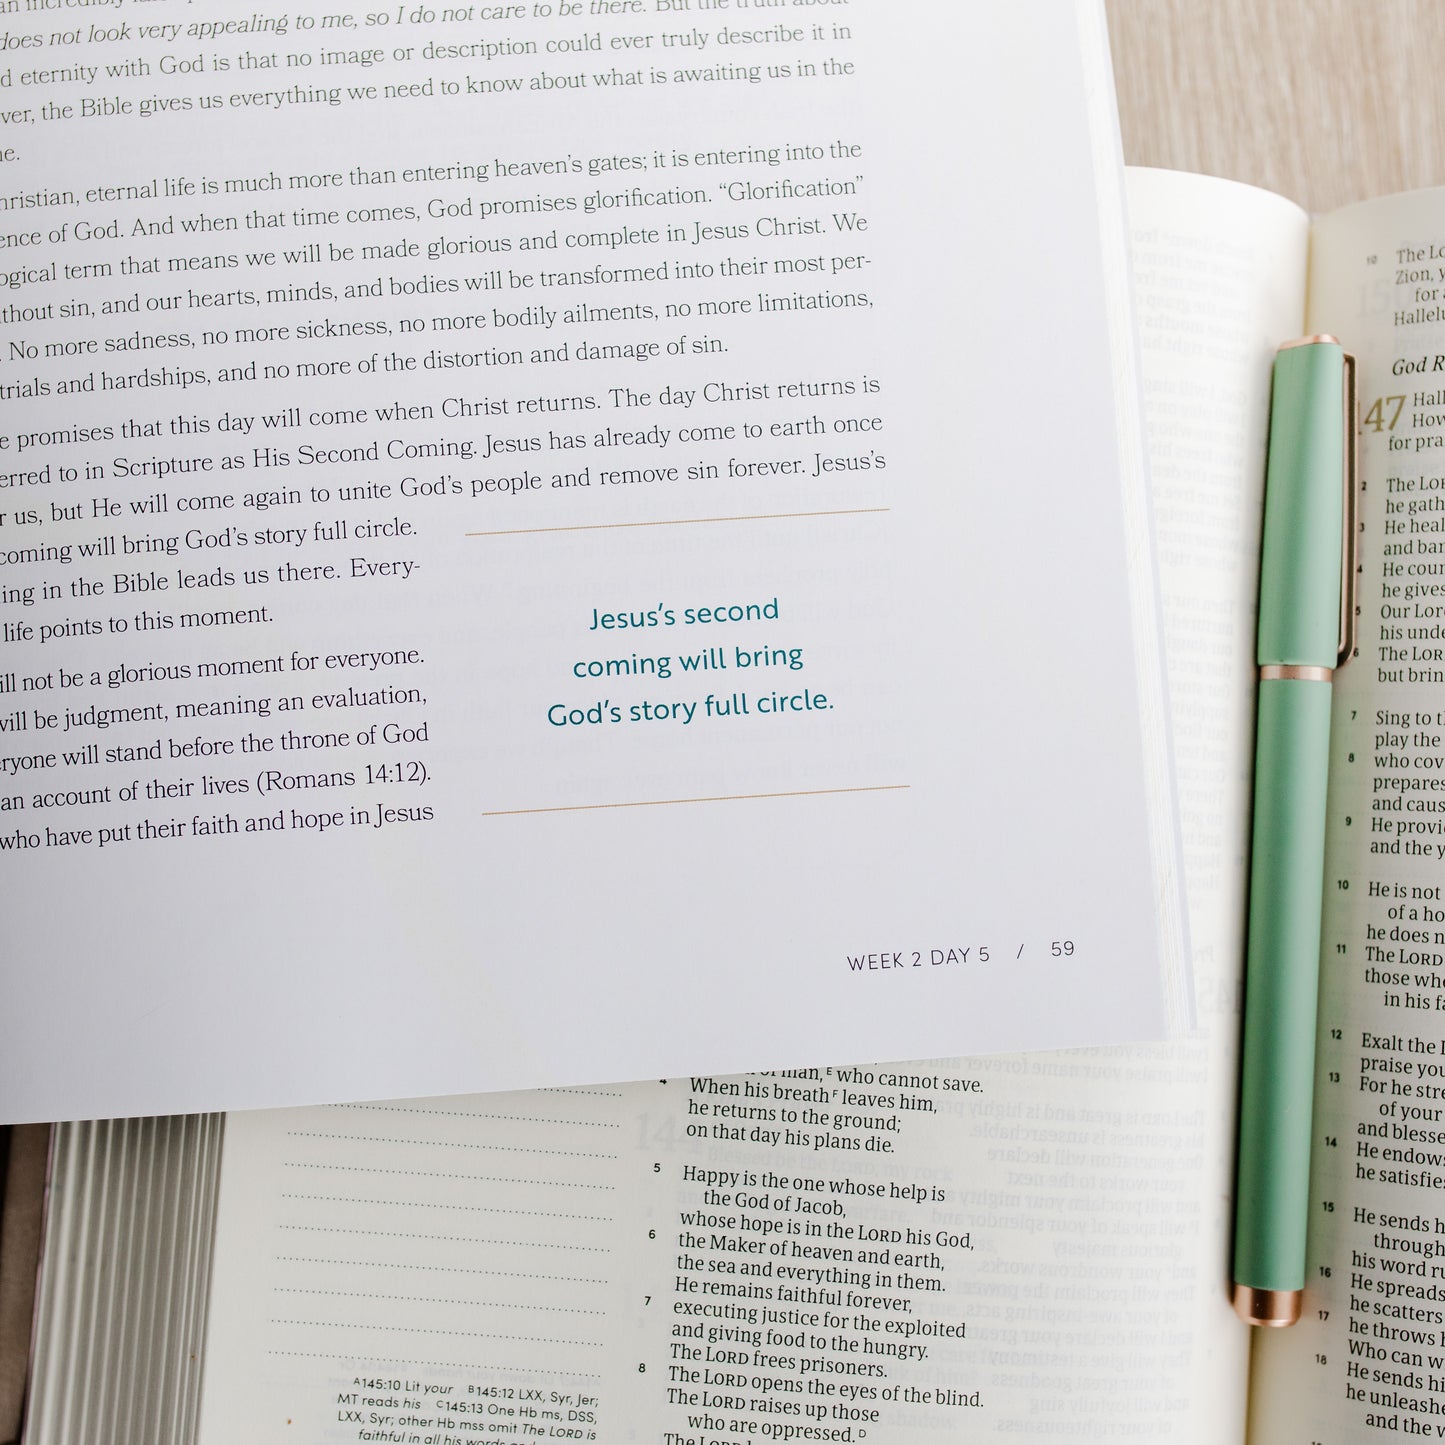 does not look very appealing to me, so I do not care to be there. But the truth about
d eternity with God is that no image or description could ever truly describe it in
ver, the Bible gives us everything we need to know about what is awaiting us in the
ne.
hristian, eternal life is much more than entering heaven's gates; it is entering into the
ence of God. And when that time comes, God promises glorification. "Glorification"
ogical term that means we will be made glorious and complete in Jesus Christ. We
thout sin, and our hearts, minds, and bodies will be transformed into their most per-
. No more sadness, no more sickness, no more bodily ailments, no more limitations,
trials and hardships, and no more of the distortion and damage of sin.
e promises that this day will come when Christ returns. The day Christ returns is
erred to in Scripture as His Second Coming. Jesus has already come to earth once
r us, but He will come again to unite God's people and remove sin forever. Jesus's
coming will bring God's story full circle.
ing in the Bible leads us there. Every-
life points to this moment.
ill not be a glorious moment for everyone.
will be judgment, meaning an evaluation,
ryone will stand before the throne of God
an account of their lives (Romans 14:12).
who have put their faith and hope in Jesus
Jesus's second
coming will bring
God's story full circle.
WEEK 2 DAY 5 / 59
of man, E who cannot save.
4 When his breath F leaves him,
he returns to the ground;
on that day his plans die.
5 Happy is the one whose help is
the God of Jacob,
whose hope is in the LORD his God,
6 the Maker of heaven and earth,
the sea and everything in them.
He remains faithful forever,
7 executing justice for the exploited
and giving food to the hungry.
The LORD frees prisoners.
8 The LORD opens the eyes of the blind.
The LORD raises up those
who are oppressed. D
The LORD
A 145:10 Lit your B 145:12 LXX, Syr, Jer;
MT reads his C 145:13 One Hb ms, DSS,
LXX, Syr; other Hb mss omit The LORD is
faithful in all his words
10 The Lo
Zion, y
for
Hallelu
God R
147 Hall
How
for pra
2 The LOR
he gath
3 He heal
and ban
4 He coun
he gives
5 Our Lor
his unde
6 The LOR
but brin
7 Sing to t
play the
8 who cov
prepares
and caus
9 He provi
and the y
10 He is not
of a ho
he does n
11 The LORD
those who
in his fa
12 Exalt the
praise you
13 For he stre
of your
and blesse
14 He endows
he satisfie
15 He sends h
through
his word ru
16 He spreads
he scatters
17 he throws h
Who can w
18 He sends hi
he unleashe
and the w